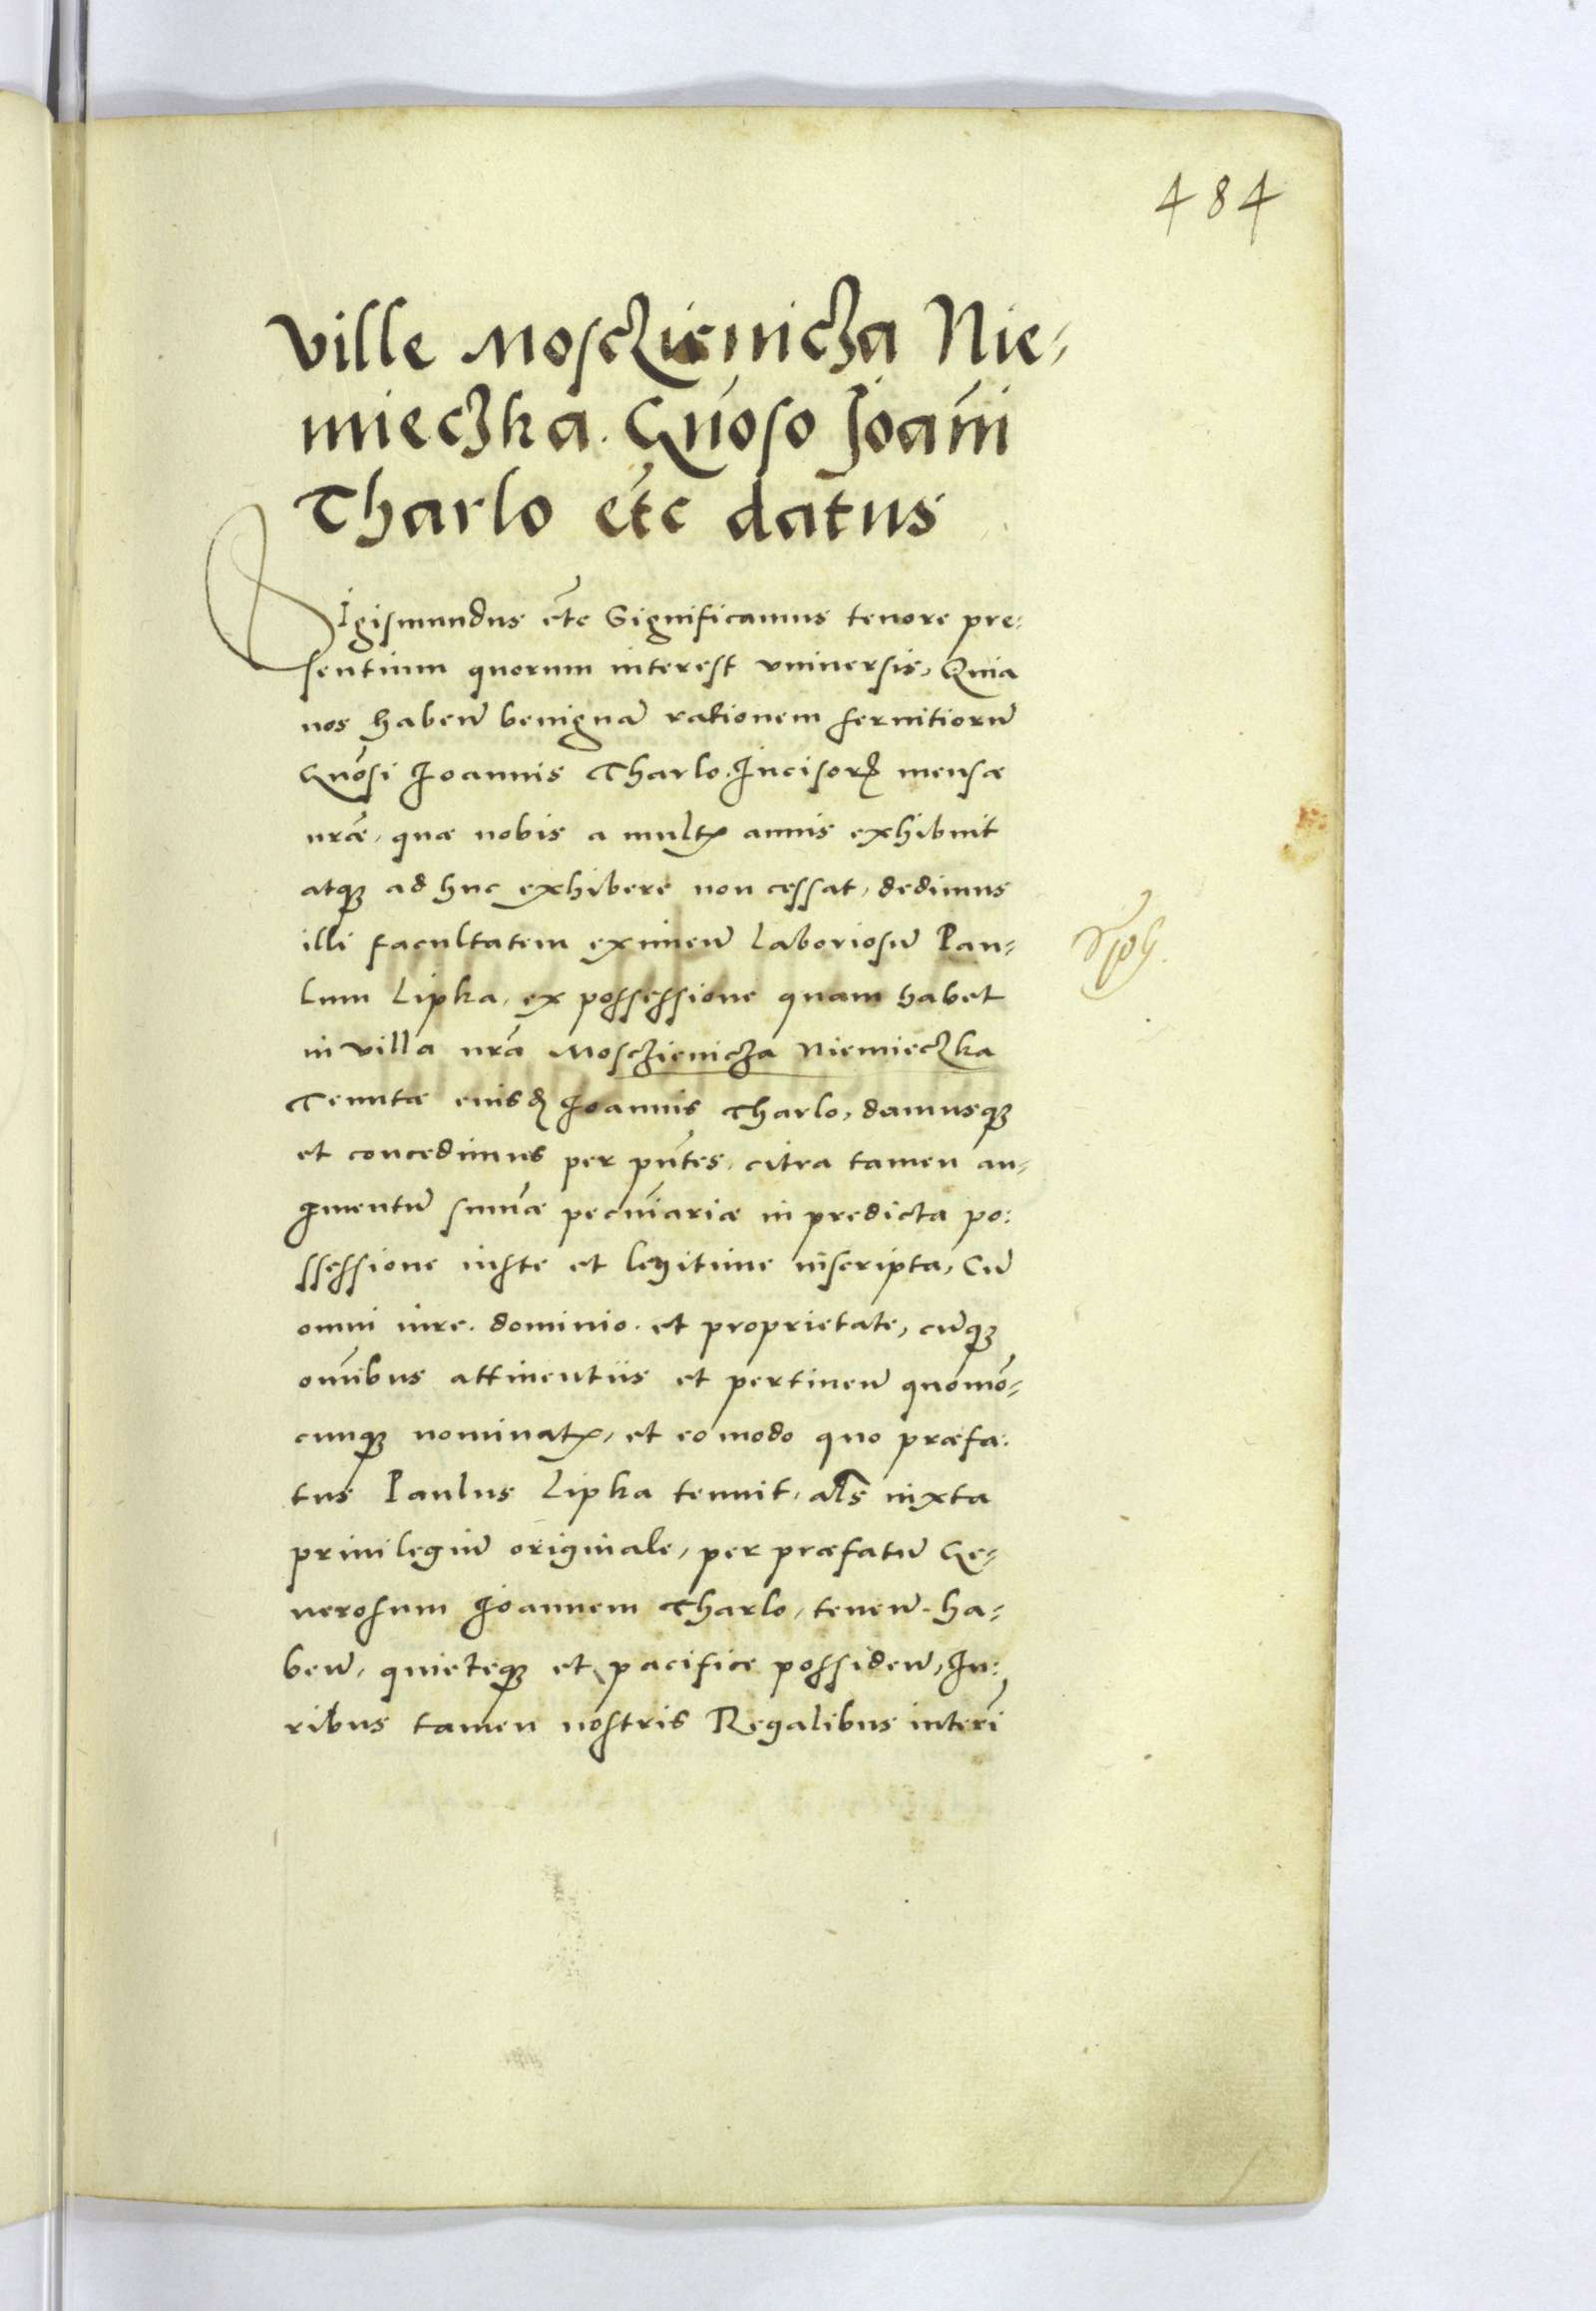 484
Ville Mosczienicza Nie-
mieczka. Gnoso Joanni
Tharlo etc datus
Sigismundus etc Significamus tenore pre:
sentium quorum interest vniuersis, Quia
nos habeñ benignã rationem seruitiorũ
Gnosi Joannis Tharlo. Incisorꝭ mensæ
nræ, quæ nobis a multꝭ annis exhibuit
atqꝫ ad huc exhibere non cessat, dedimus
illi facultatem eximeñ laboriosũ Pau-
lum Lipka, ex possessione quam habet
in villa nrã Mosczienicza Niemieczka
Tenutæ eiusdꝭ Joannis Tharlo, damusqꝫ
et concedimus per pñtes, citra tamen au-
gmentũ sum̃æ pecuniariæ in predicta po:
ssessione iuste et legitime inscripta, Cũ
omni iure. dominio. et proprietate, cũqꝫ
om̃ibus attinentiis et pertineñ quomõ-
cunqꝫ nominatꝭ, et eo modo quo præfa:
tus Paulus Lipka tenuit, als iuxta
priuilegiũ originale, per præfatũ Ge-
nerosum Joannem Tharlo, teneñ. ha-
beñ, quieteqꝫ et pacifice possideñ, Iu:
ribus tamen nostris Regalibus interĩ